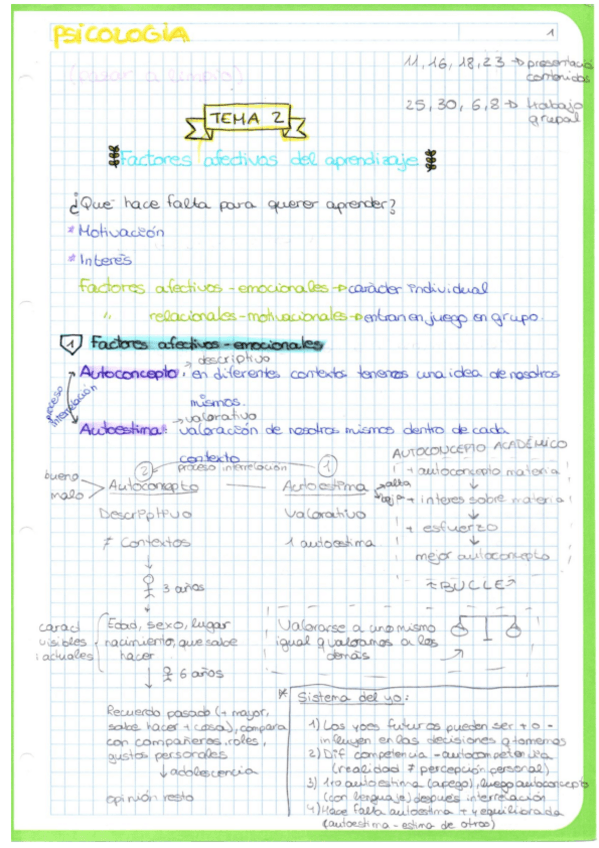 PSICOLOGÍA
1
(pasar a limpio)
11, 16, 18, 23 → presentació
contenidos
25, 30, 6, 8 → trabajo
grupal
TEMA 2
Factores afectivos del aprendizaje
¿Qué hace falta para querer aprender?
* Motivación
* Interés
Factores afectivos - emocionales → carácter individual
" relacionales - motivacionales → entran en juego en grupo.
1 Factores afectivos - emocionales
descriptivo
Autoconcepto: en diferentes contextos tenemos una idea de nosotros
mismos.
proceso
interrelación
→ valorativo
Autoestima: valoración de nosotros mismos dentro de cada
contexto
AUTOCONCEPTO ACADÉMICO
2 proceso interrelación 1
bueno
malo
Autoconcepto
Autoestima
alta
baja
+ autoconcepto materia
↓
+ interes sobre materia
↓
+ esfuerzo
↓
mejor autoconcepto
BUCLE
Descriptivo
Valorativo
≠ Contextos
1 autoestima
↓
3 años
↓
caract
visibles
actuales
Edad, sexo, lugar
nacimiento, que sabe
hacer
Valorarse a uno mismo
igual q valoramos a los
demás
↓ 6 años
Recuerdo pasado (+ mayor,
sabe hacer + cosa), compara
con compañeros, roles,
gustos personales
↓ adolescencia
opinión resto
* Sistema del yo:
1) Los yoes futuros pueden ser + o -
influyen en las decisiones q tomemos
2) Dif competencia - autocompetencia
(realidad ≠ percepción personal)
3) 1ro autoestima (apego), luego autoconcepto
(con lenguaje) después interrelación
4) Hace falta autoestima + y equilibrada
(autoestima - estima de otros)